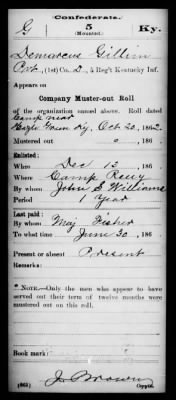 Confederate.
G 5 Ky.
(Mounted.)
Demarcus Gillim
Pvt, (1st) Co. D, 5 Reg't Kentucky Inf.
Appears on
Company Muster-out Roll
of the organization named above. Roll dated
Camp near
Hazle Green Ky, Oct 20, 1862.
Mustered out , 186 .
Enlisted:
When Dec 13 , 186 .
Where Camp Recy
By whom John S Williams
Period 1 Year
Last paid:
By whom Maj Fisher
To what time June 30 , 186 .
Present or absent Present
Remarks:
*NOTE.-Only the men who appear to have
served out their term of twelve months were
mustered out on this roll.
Book mark:
J. Brown
(861) Copyist.